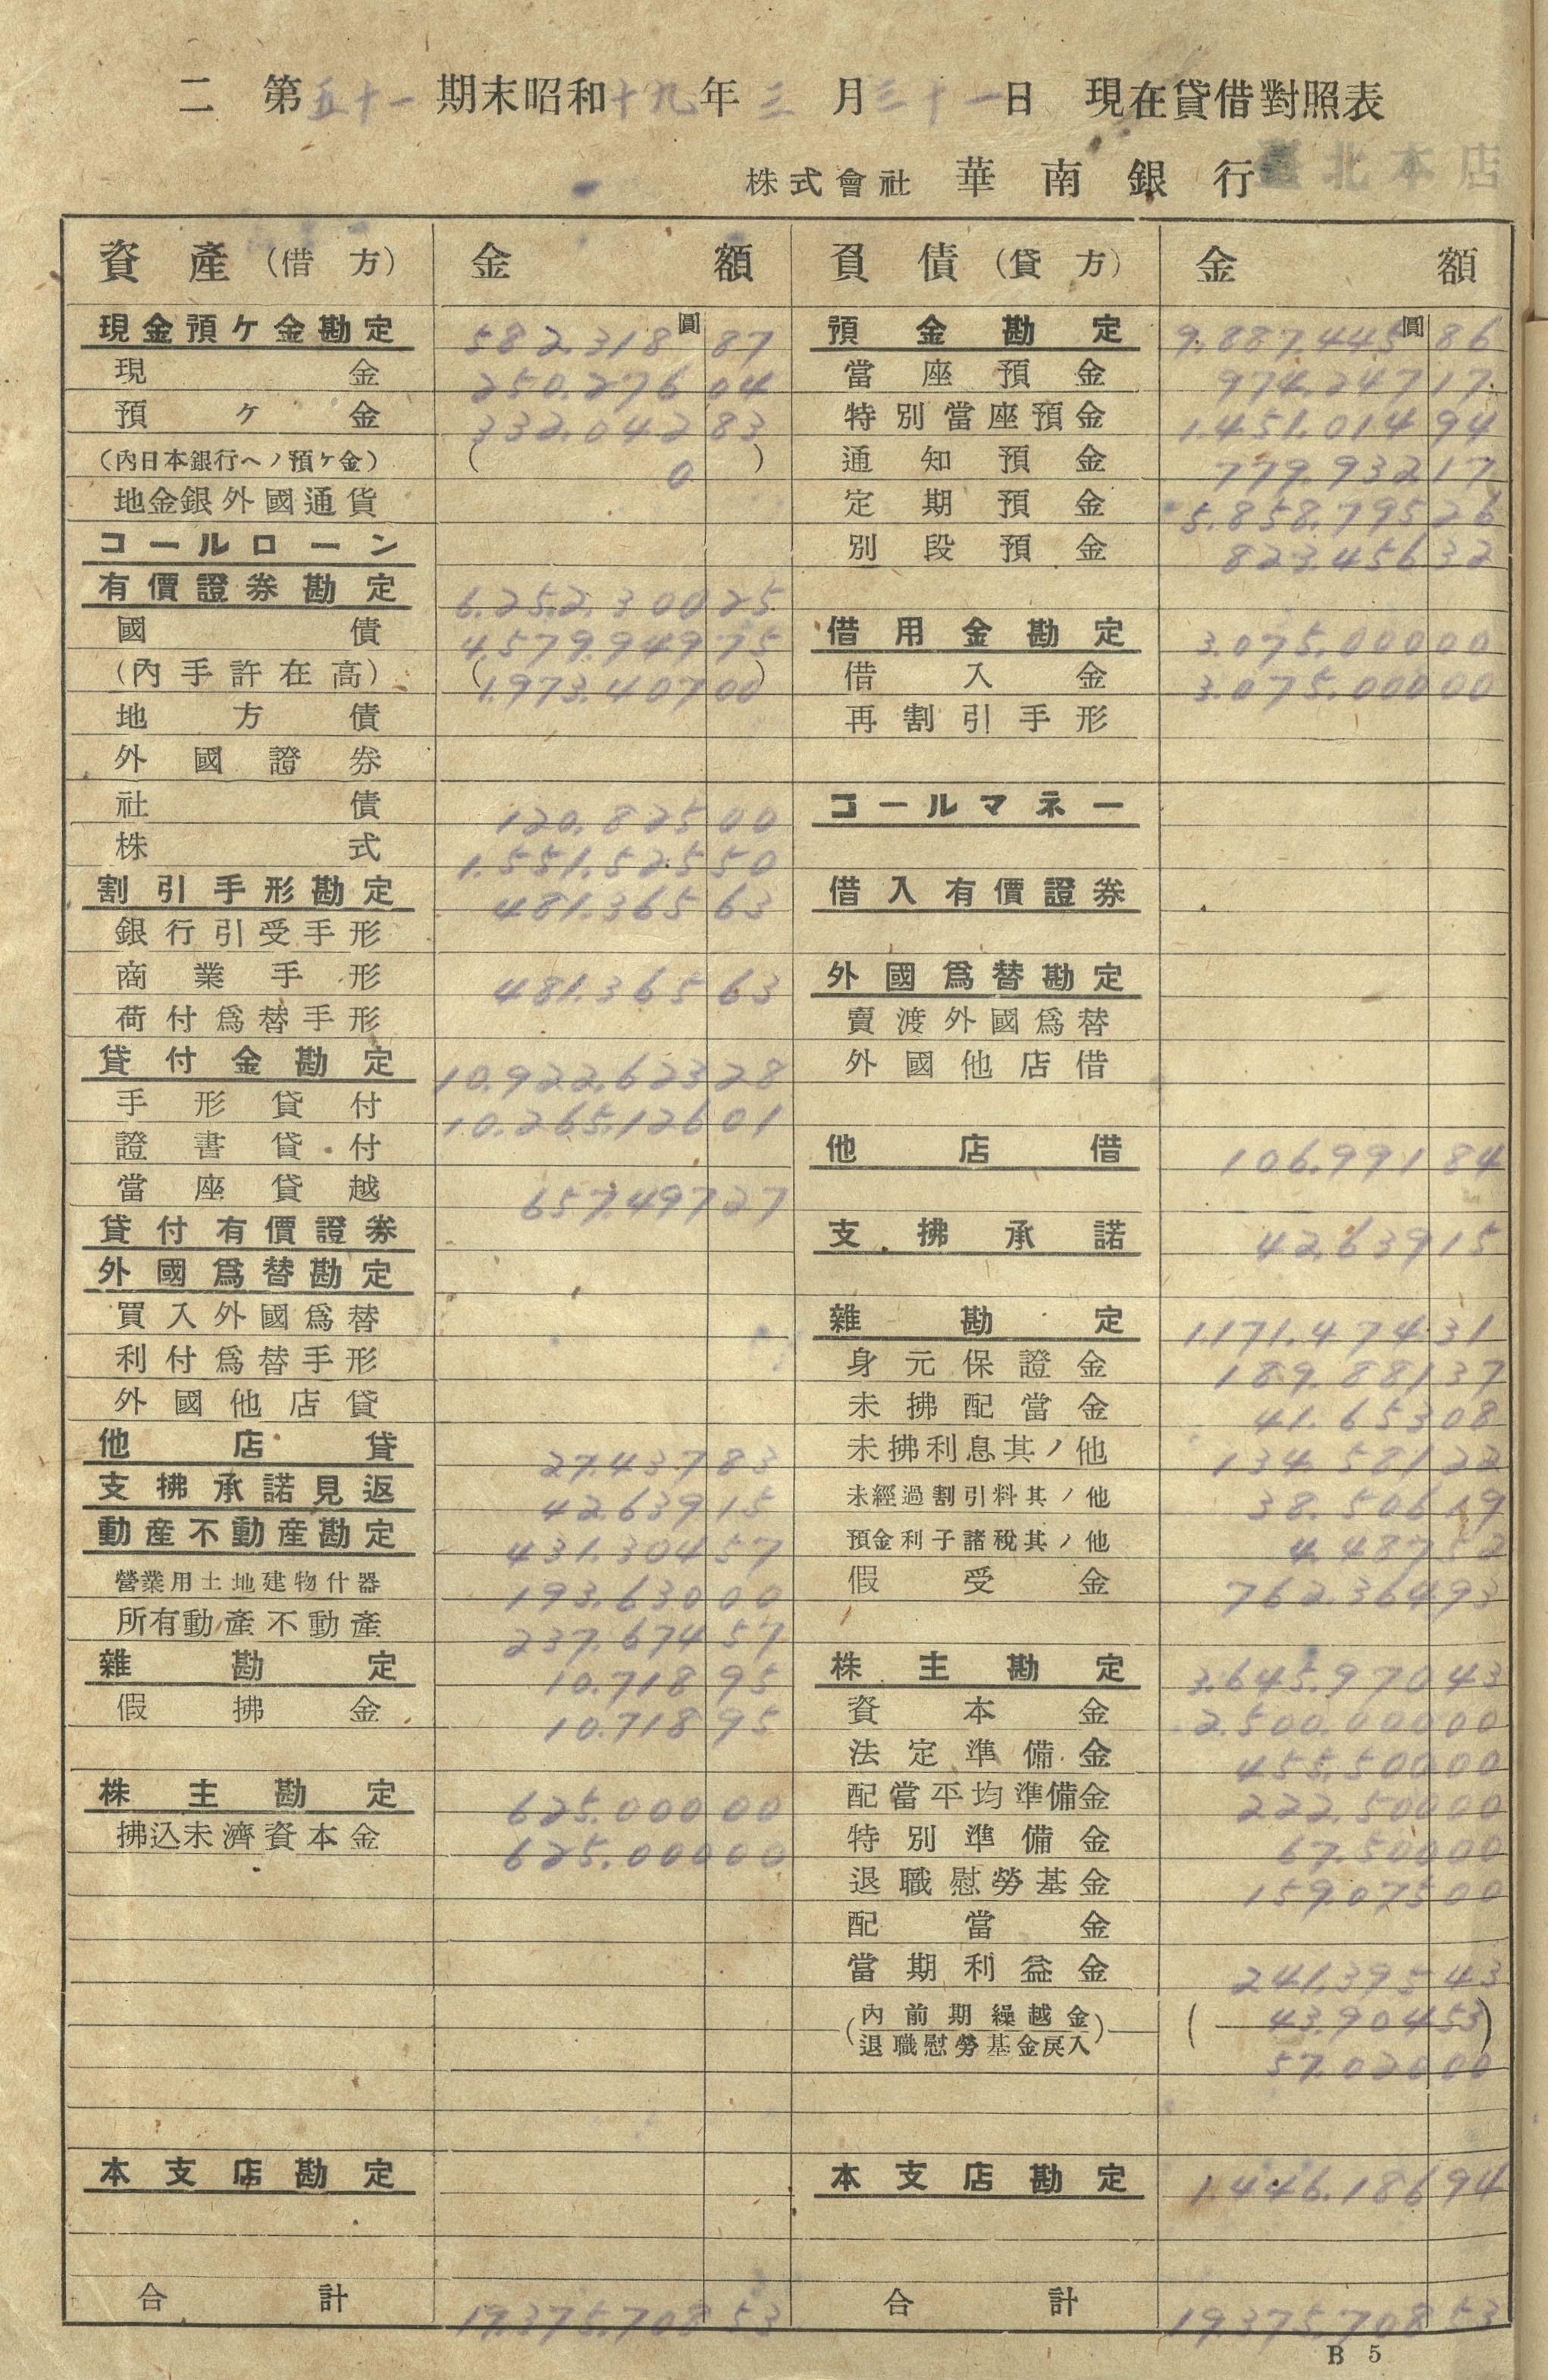 二 第五十一期末昭和十九年三月三十一日 現在貸借對照表
株式會社 華南銀行 臺北本店
資產(借方) 金額 負債(貸方) 金額
現金預ケ金勘定 582,318圓87 預金勘定 9,887,445圓86
現金 250,276 04 當座預金 974,247 17
預ケ金 332,042 83 特別當座預金 1,451,014 94
(內日本銀行ヘノ預ケ金) ( 0 ) 通知預金 779,932 17
地金銀外國通貨 定期預金 5,858,795 26
コールローン 別段預金 823,456 32
有價證券勘定 6,252,300 25
國債 4,579,949 75 借用金勘定 3,075,000 00
(內手許在高) (1,973,407 00) 借入金 3,075,000 00
地方債 再割引手形
外國證券
社債 120,825 00 コールマネー
株式 1,551,525 50
割引手形勘定 481,365 63 借入有價證券
銀行引受手形
商業手形 481,365 63 外國爲替勘定
荷付爲替手形 賣渡外國爲替
貸付金勘定 10,922,623 28 外國他店借
手形貸付 10,265,126 01
證書貸付 他店借 106,991 84
當座貸越 657,497 27
貸付有價證券 支拂承諾 42,639 15
外國爲替勘定
買入外國爲替 雜勘定 1,171,474 31
利付爲替手形 身元保證金 189,881 37
外國他店貸 未拂配當金 41,653 08
他店貸 27,437 83 未拂利息其ノ他 134,581 22
支拂承諾見返 42,639 15 未經過割引料其ノ他 38,506 19
動產不動產勘定 431,304 57 預金利子諸稅其ノ他 4,487 52
營業用土地建物什器 193,630 00 假受金 762,364 93
所有動產不動產 237,674 57
雜勘定 10,718 95 株主勘定 3,645,970 43
假拂金 10,718 95 資本金 2,500,000 00
法定準備金 455,500 00
株主勘定 625,000 00 配當平均準備金 222,500 00
拂込未濟資本金 625,000 00 特別準備金 67,500 00
退職慰勞基金 159,075 00
配當金
當期利益金 241,395 43
(內前期繰越金 (43,904 53)
退職慰勞基金戾入) 57,020 00
本支店勘定 本支店勘定 1,446,186 94
合計 19,375,708 53 合計 19,375,708 53
B 5